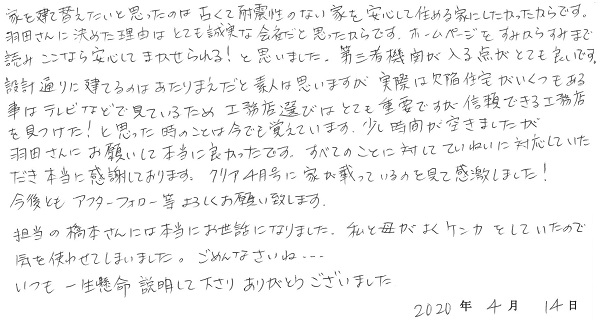 家を建て替えたいと思ったのは古くて耐震性のない家を安心して住める家にしたかったからです。
羽田さんに決めた理由はとても誠実な会社だと思ったからです。ホームページをすみからすみまで
読みここなら安心してまかせられる！と思いました。第三者機関が入る点がとても良いです。
設計通りに建てるのはあたりまえだと素人は思いますが実際は欠陥住宅がいくつもある
事はテレビなどで見ているため工務店選びはとても重要ですが信頼できる工務店
を見つけた！と思った時のことは今でも覚えています。少し時間が空きましたが
羽田さんにお願いして本当に良かったです。すべてのことに対してていねいに対応していた
だき本当に感謝しております。クリア4月号に家が載っているのを見て感激しました！
今後ともアフターフォロー等よろしくお願い致します。
担当の橋本さんには本当にお世話になりました。私と母がよくケンカをしていたので
気を使わせてしまいました。ごめんなさいね…
いつも一生懸命説明して下さりありがとうございました
2020年4月14日